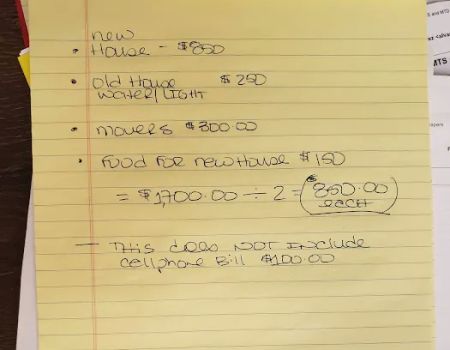 new
• House - $850
• old House $250
water/light
• movers $300.00
• Food For new House $150
= $1,700.00 ÷ 2 = $850.00
eccH
— This does NOT Include
cellphone Bill $100.00
MTS